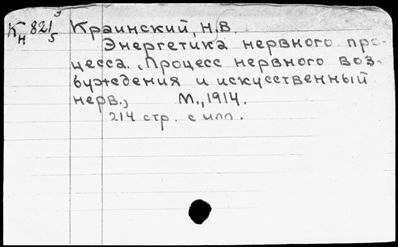 К н 821 3/5 Краинский, Н.В.
Энергетика нервного про-
цесса. Процесс нервного воз-
буждения и искусственный
нерв., М., 1914.
214 стр. с илл.